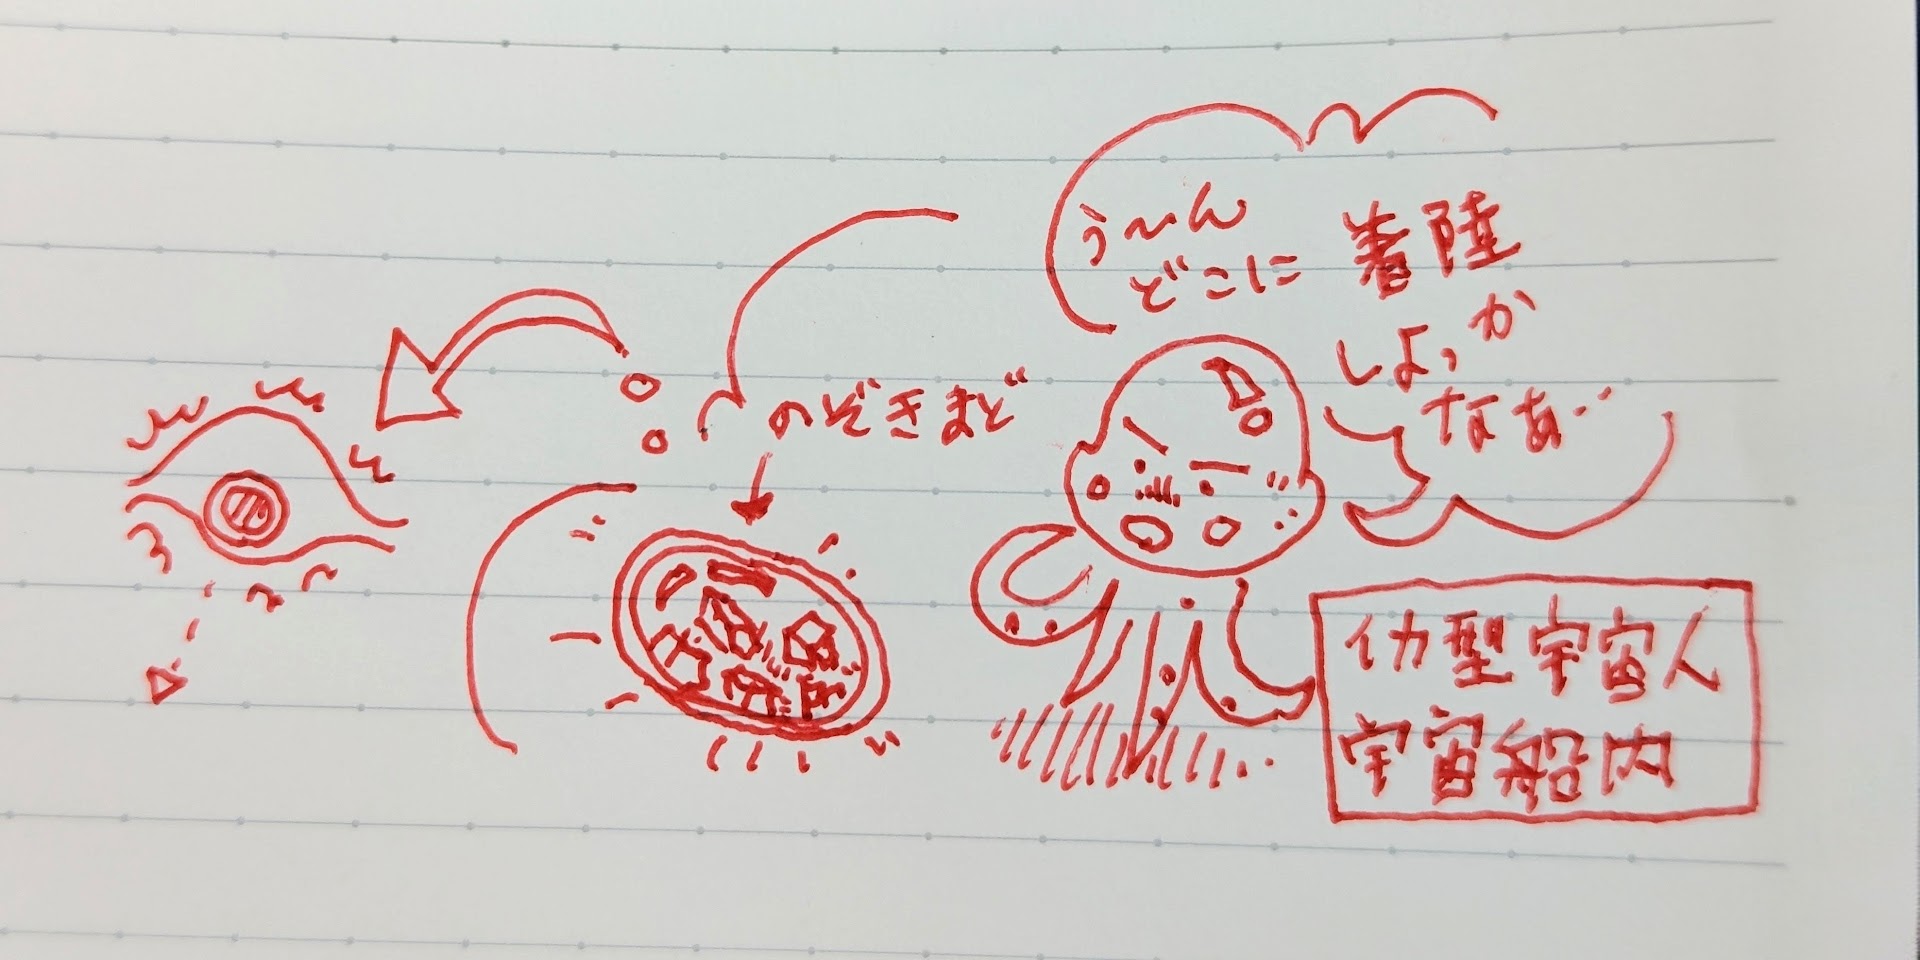 う〜ん
どこに着陸
しよっか
なあ‥
のぞきまど
イカ型宇宙人
宇宙船内